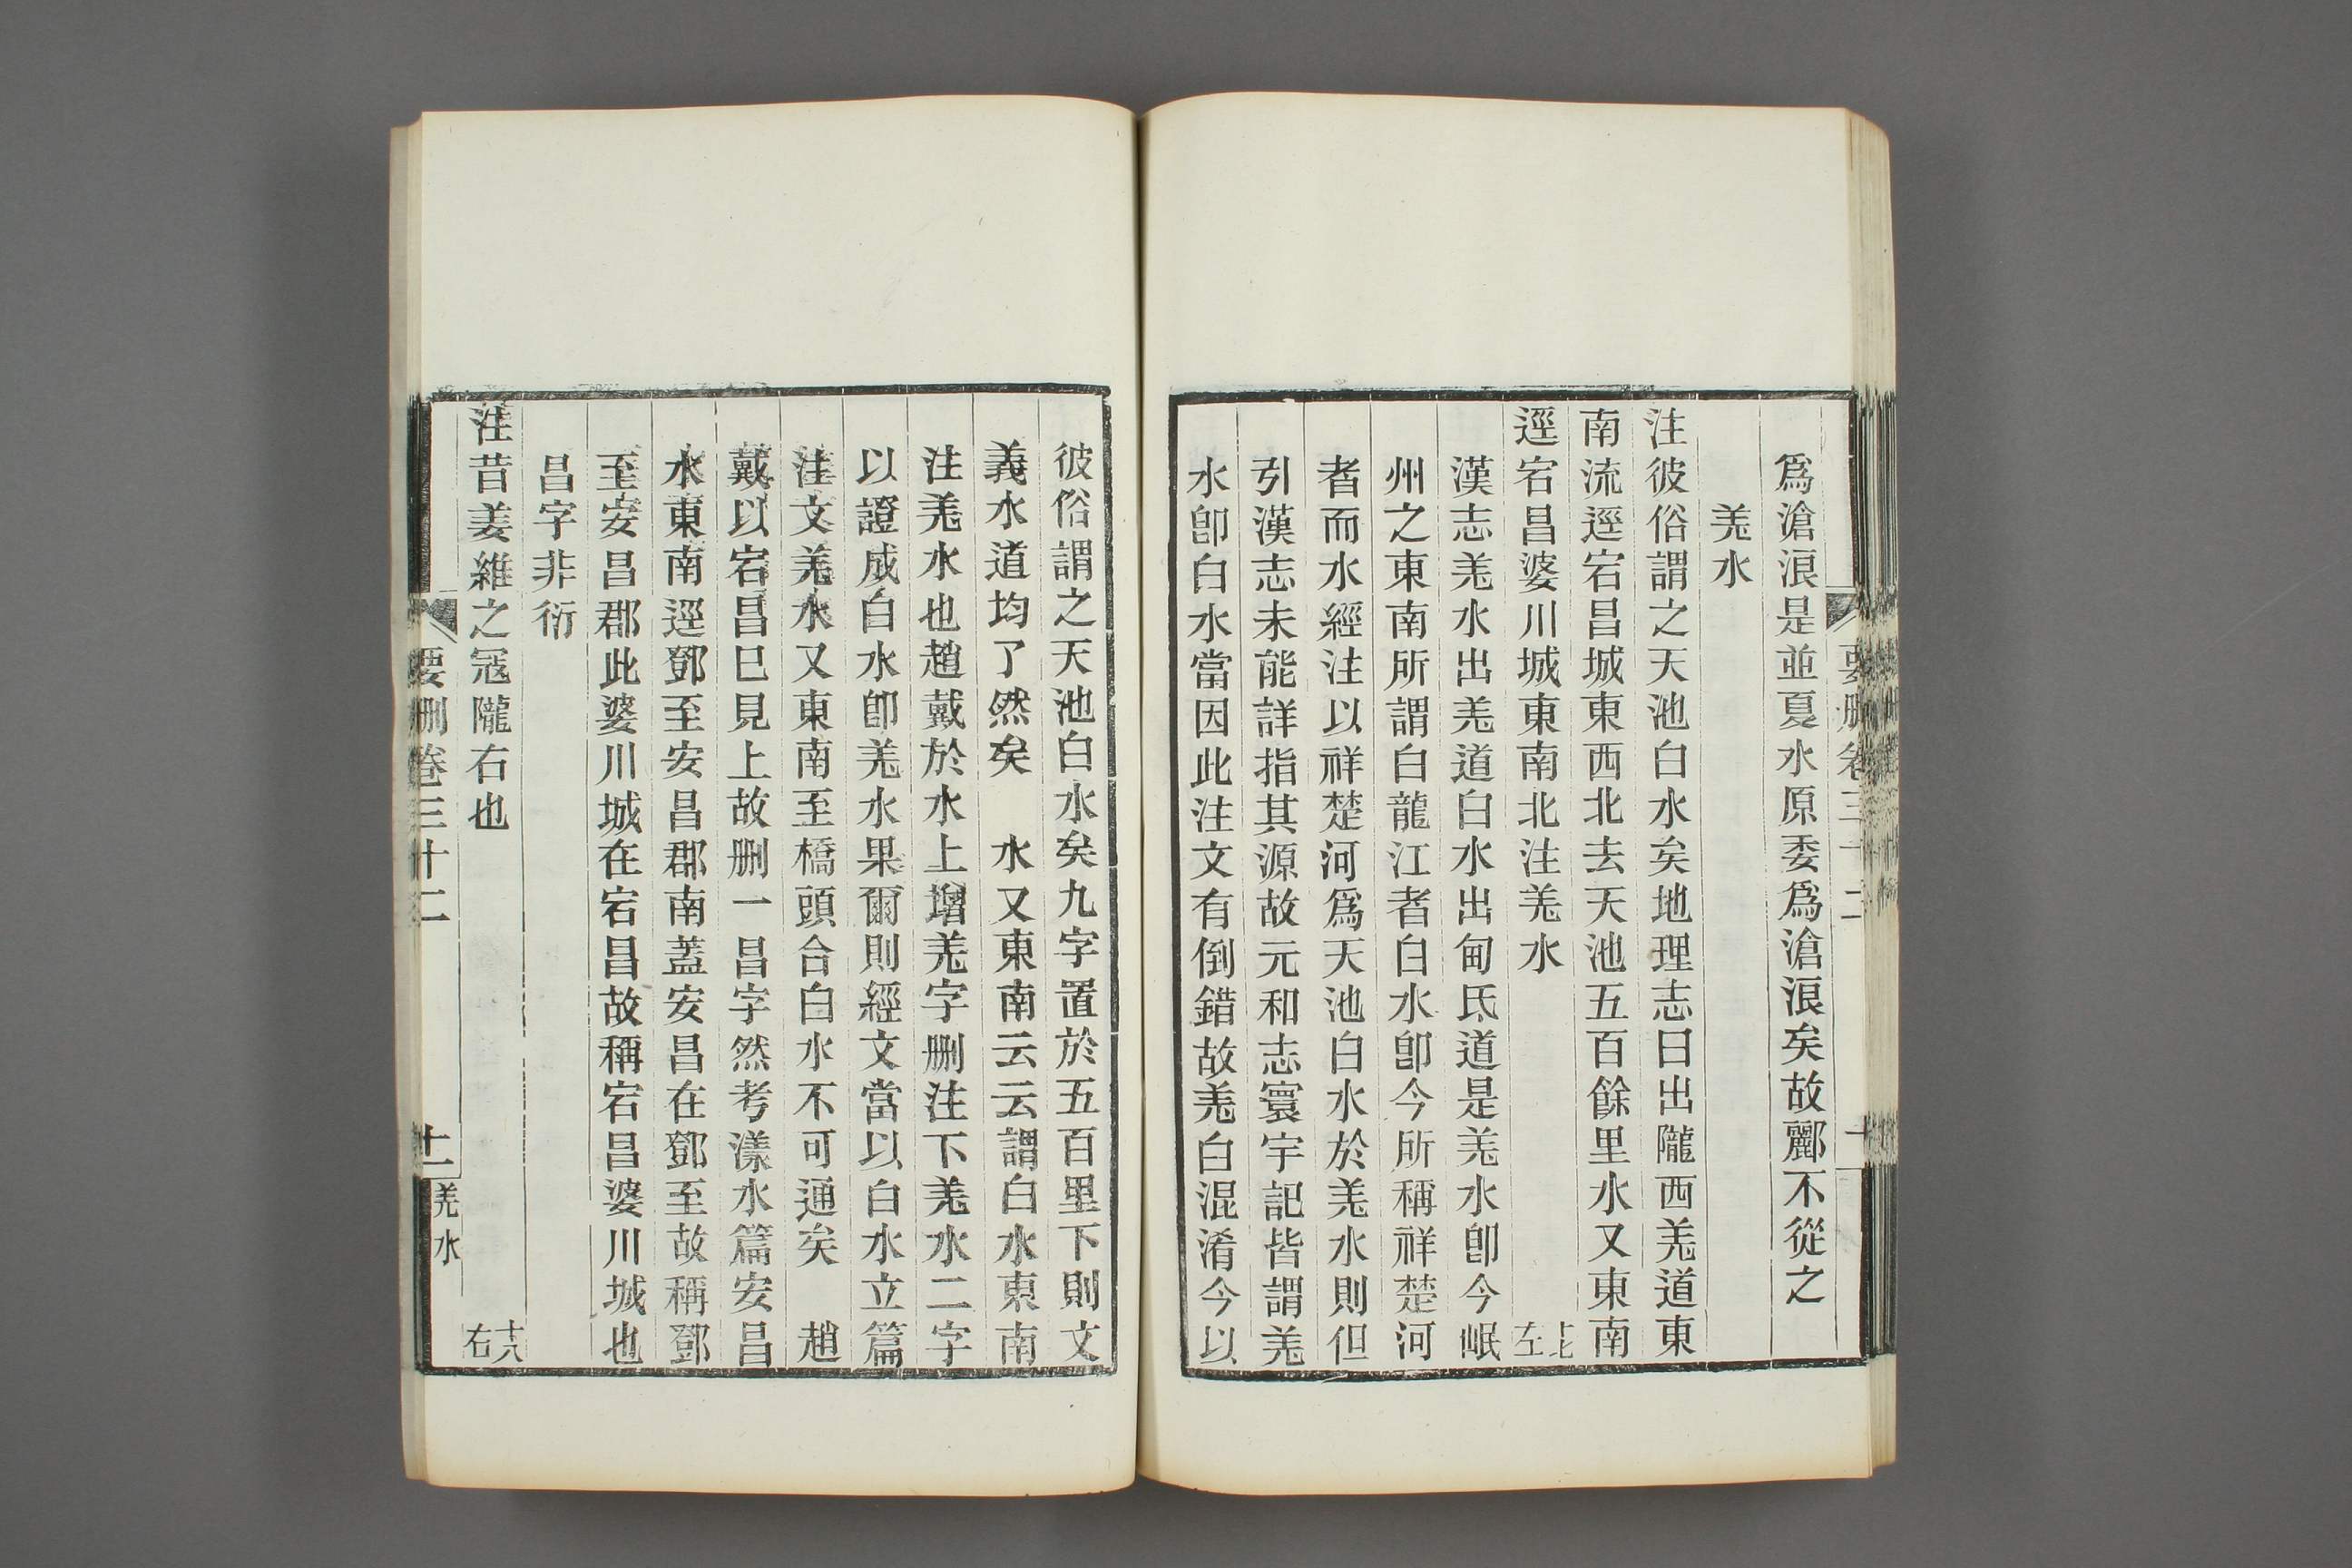 爲滄浪是並夏水原委爲滄浪矣故酈不從之
羌水
注彼俗謂之天池白水矣地理志曰出隴西羌道東
南流逕宕昌城東西北去天池五百餘里水又東南
逕宕昌婆川城東南北注羌水 左
漢志羌水出羌道白水出甸氐道是羌水卽今岷
州之東南所謂白龍江者白水卽今所稱祥楚河
者而水經注以祥楚河爲天池白水於羌水則但
引漢志未能詳指其源故元和志寰宇記皆謂羌
水卽白水當因此注文有倒錯故羌白混淆今以
彼俗謂之天池白水矣九字置於五百里下則文
義水道均了然矣　水又東南云云謂白水東南
注羌水也趙戴於水上增羌字删注下羌水二字
以證成白水卽羌水果爾則經文當以白水立篇
注文羌水又東南至橋頭合白水不可通矣　趙
戴以宕昌巳見上故删一昌字然考漾水篇安昌
水東南逕鄧至安昌郡南蓋安昌在鄧至故稱鄧
至安昌郡此婆川城在宕昌故稱宕昌婆川城也
昌字非衍
注昔姜維之寇隴右也 十八右
要删卷三十二 十一 羌水